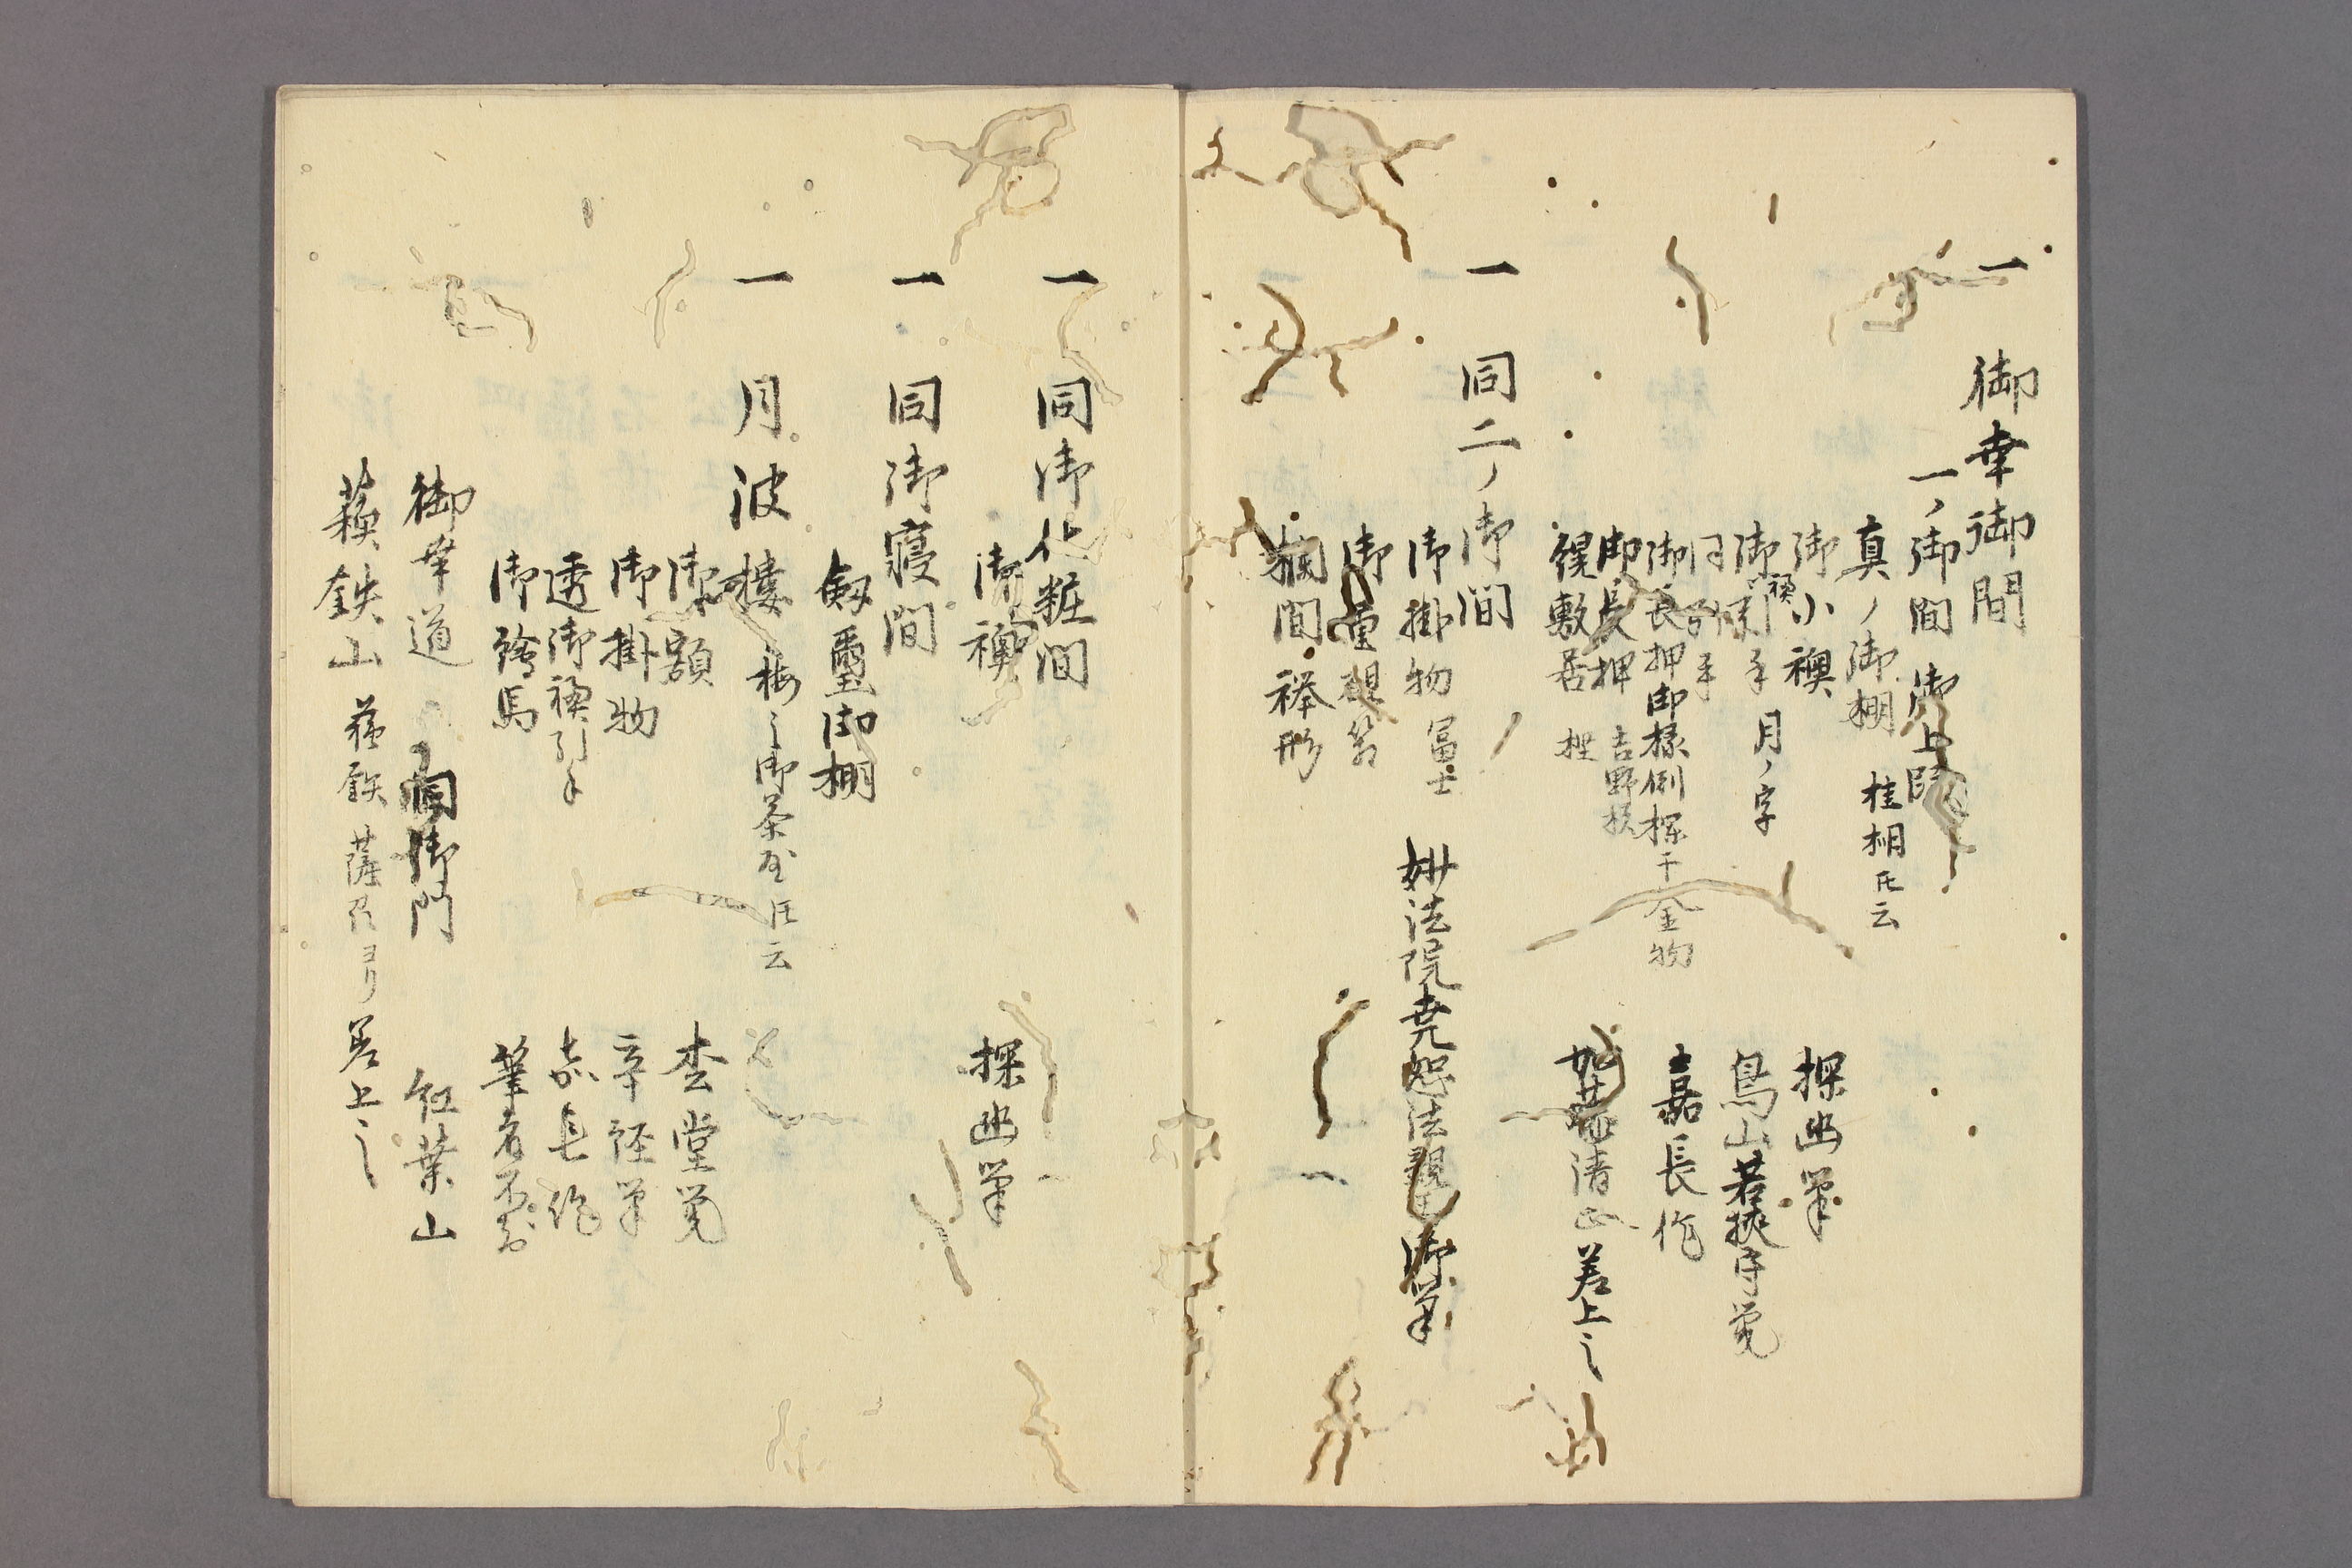 一 御幸御間
一ノ御間 御上段
真ノ御棚 桂棚氏云
御小襖 探幽筆
御襖引手 月ノ字 鳥山若狭守筆
同引手
御長押御椽側 金物 嘉長作
御長押 吉野
縁敷居 加藤清正差上之
一 同二ノ御間
御掛物 冨士 妙法院尭恕法親王御筆
御重硯筥
欄間 形
一 同御化粧間
御襖 探幽筆
一 同御寝間
剱璽御棚
一 月波楼 梅之御茶屋氏云
御額 李堂筆
御掛物 筆
透御襖引手 嘉長作
御絵馬 筆者不知
御幸道 同御門 紅葉山
蘓鉄山 蘓鉄薩州ヨリ差上之